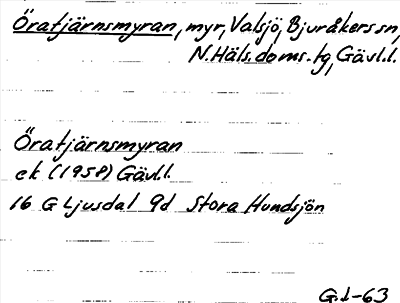 Öratjärnsmyran, myr, Valsjö, Bjuråkers sn,
N.Häls.doms.tg, Gävl.l.
Öratjärnsmyran
ek (1958) Gävl.l.
16 G Ljusdal 9d Stora Hundsjön
G.L-63